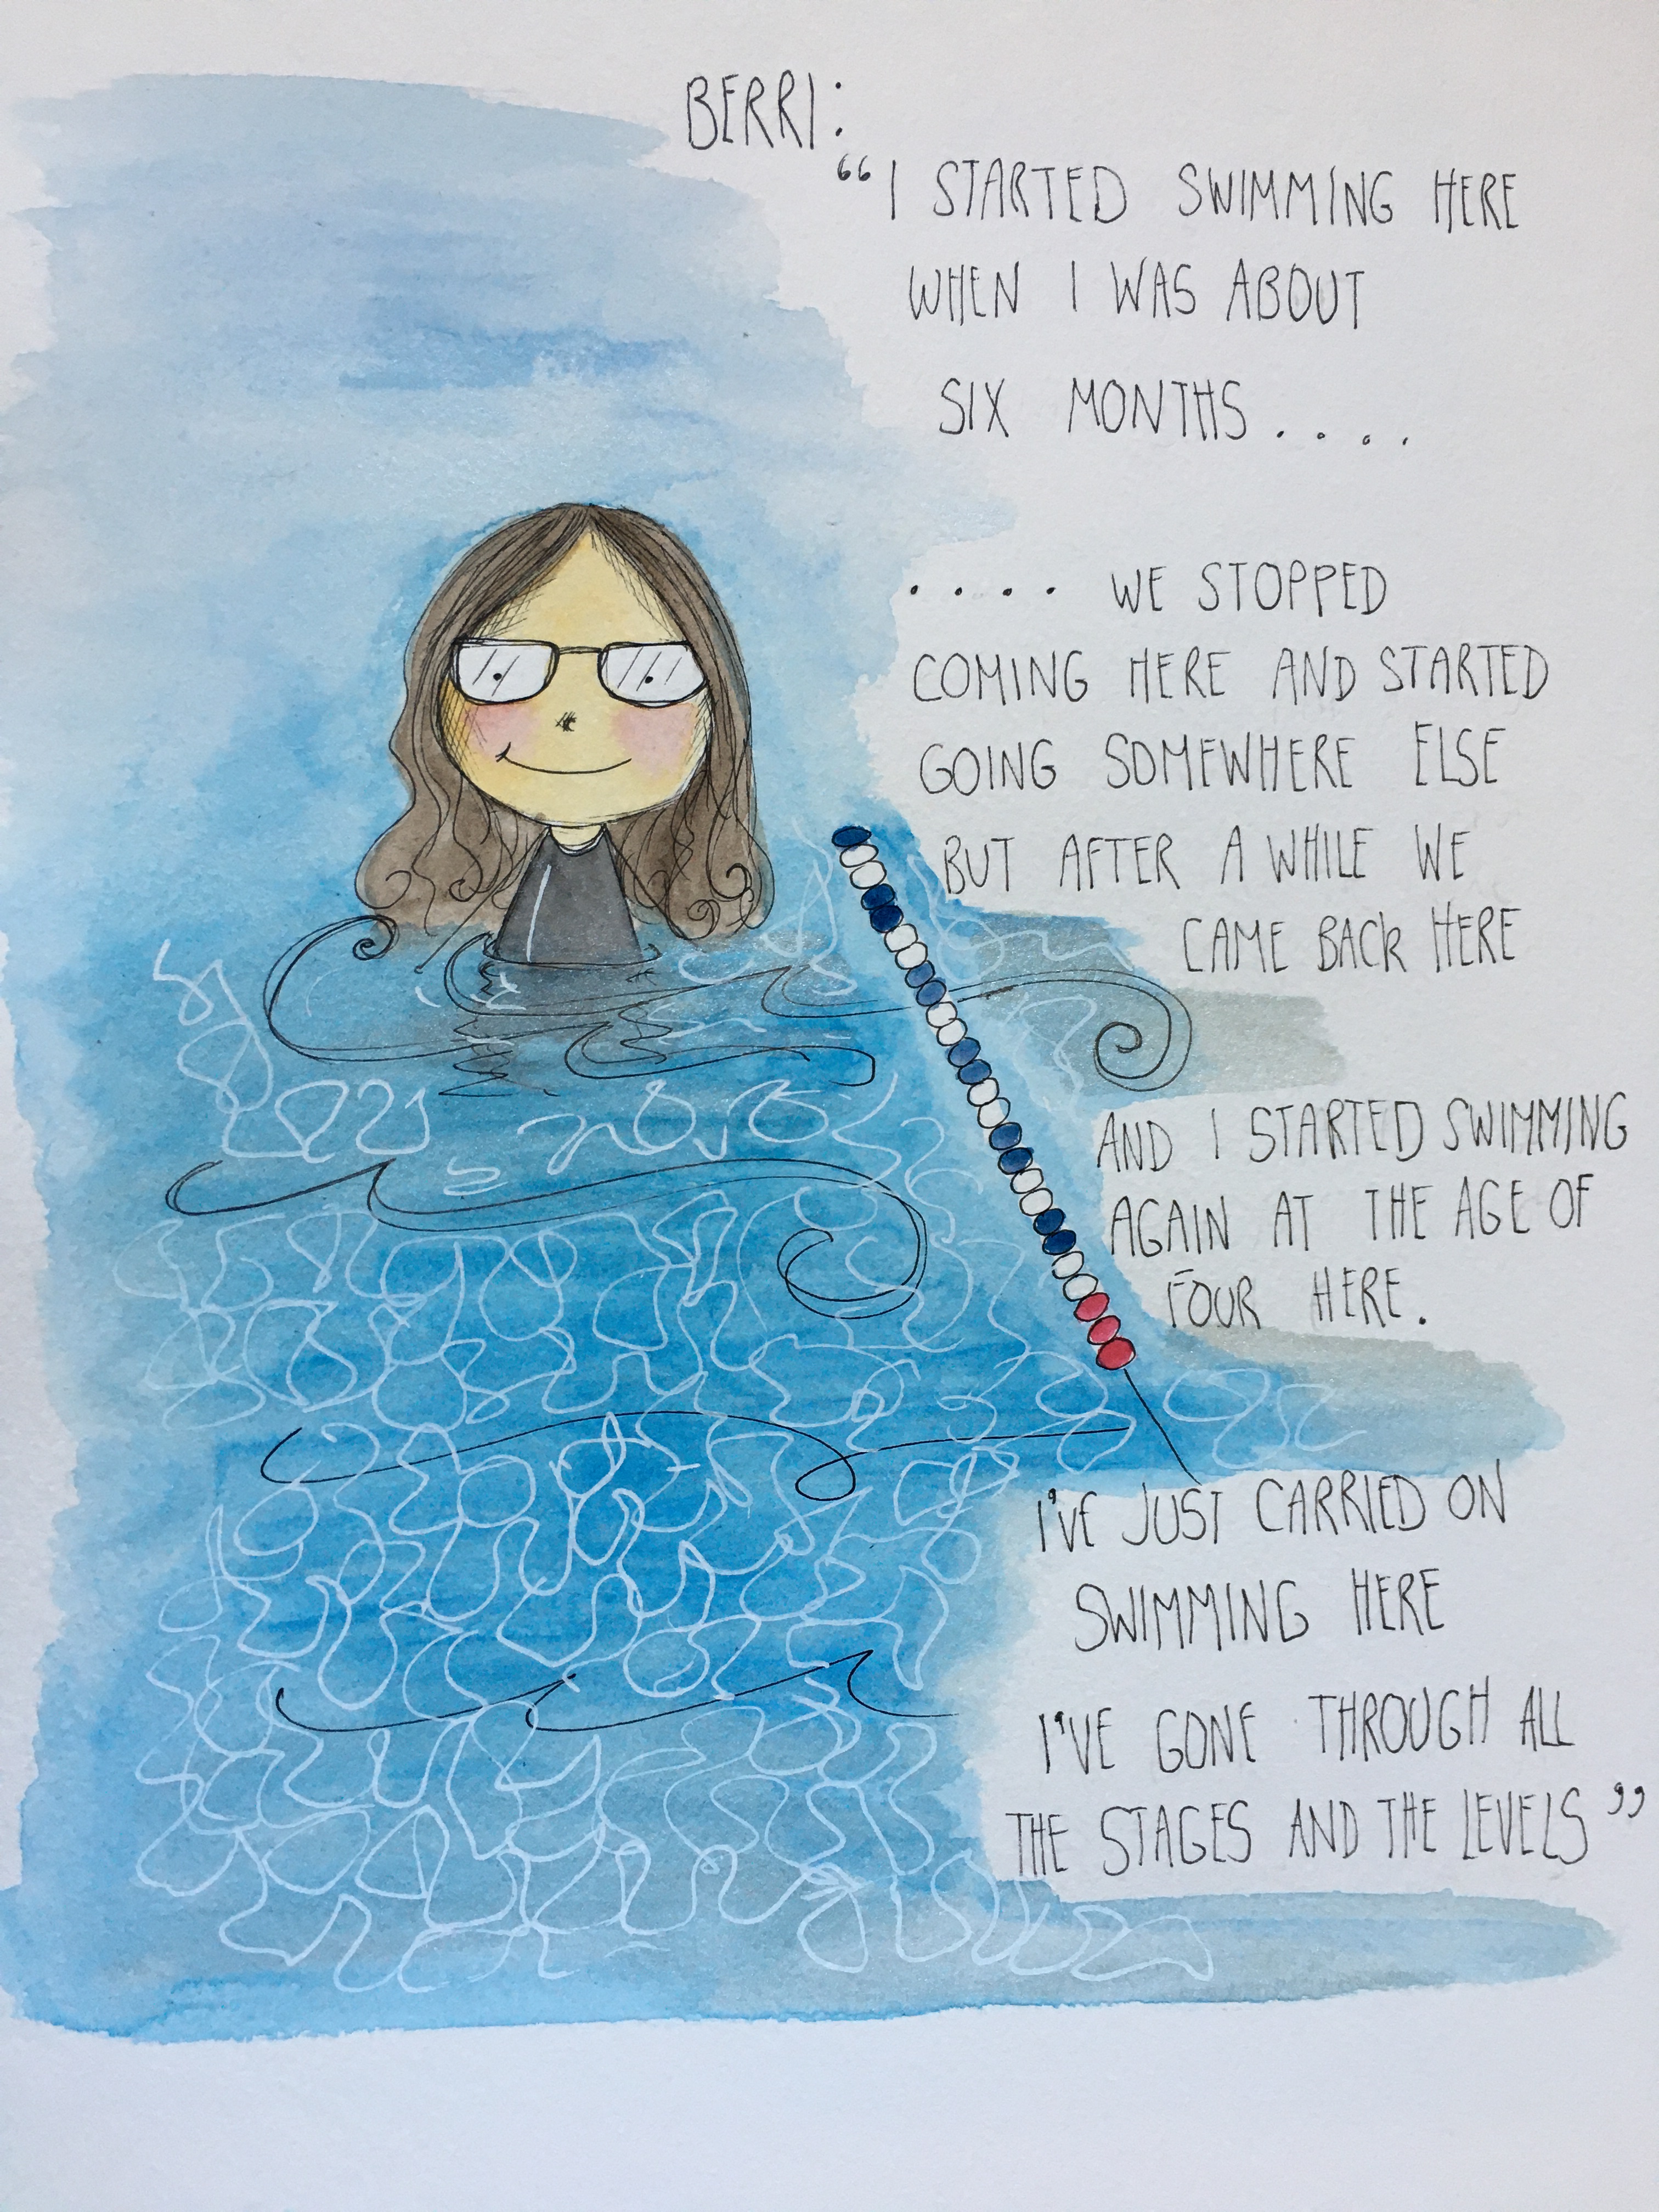 BERRI:
“I STARTED SWIMMING HERE
WHEN I WAS ABOUT
SIX MONTHS....
.... WE STOPPED
COMING HERE AND STARTED
GOING SOMEWHERE ELSE
BUT AFTER A WHILE WE
CAME BACK HERE
AND I STARTED SWIMMING
AGAIN AT THE AGE OF
FOUR HERE.
I'VE JUST CARRIED ON
SWIMMING HERE
I'VE GONE THROUGH ALL
THE STAGES AND THE LEVELS”